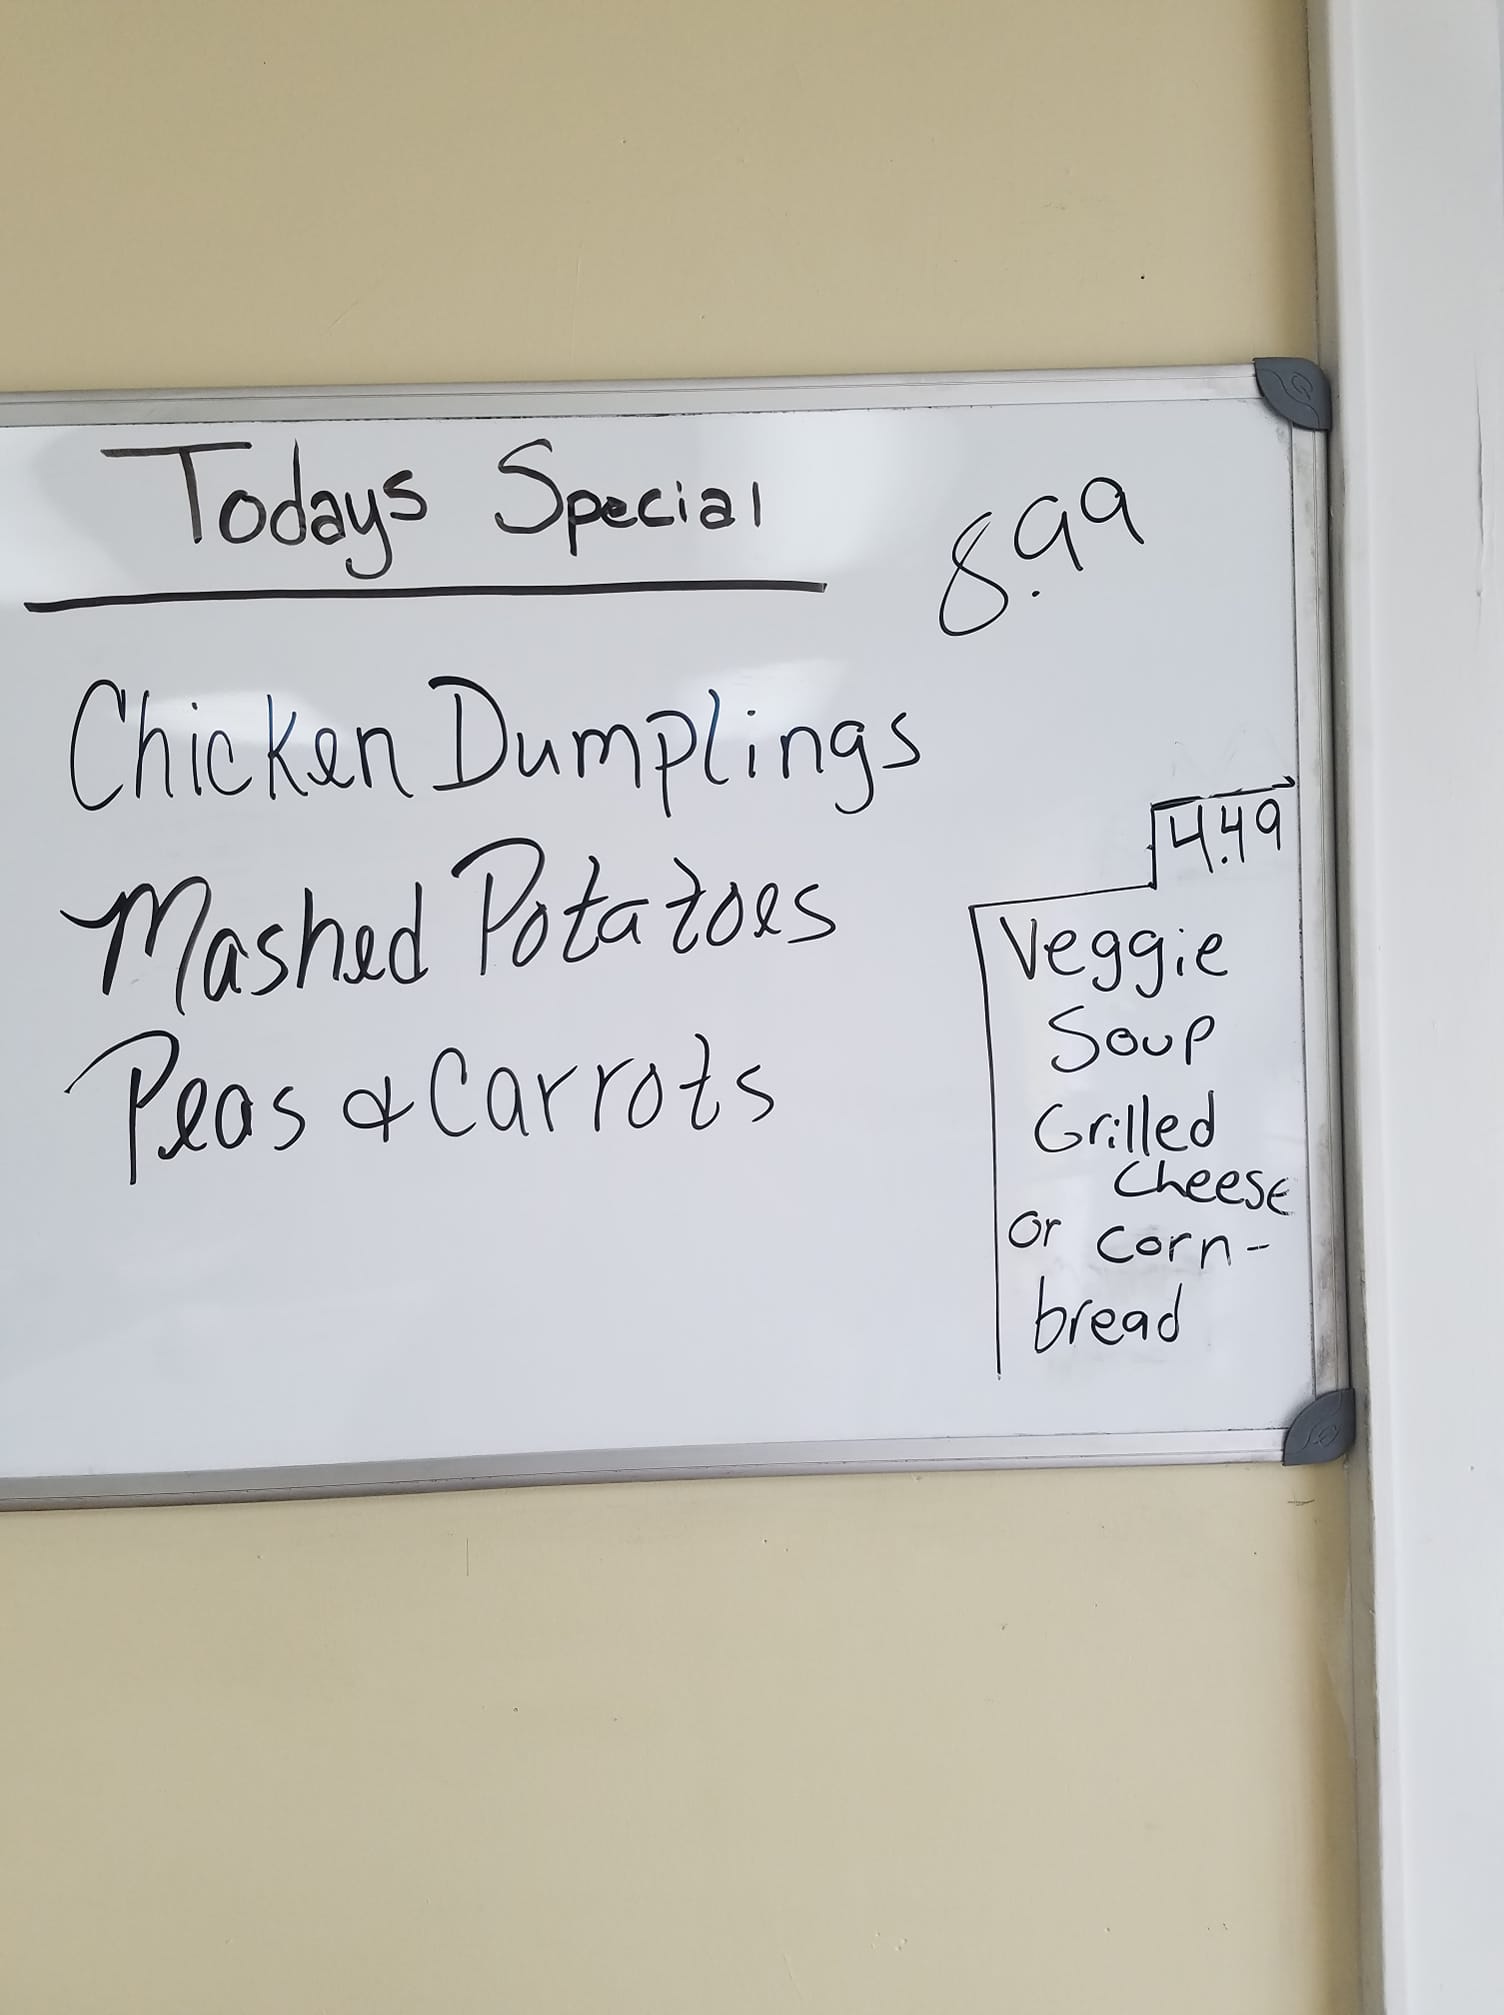 Todays Special
8.99
Chicken Dumplings
Mashed Potatoes
Peas & Carrots
4.49
Veggie
Soup
Grilled
Cheese
or Corn-
bread